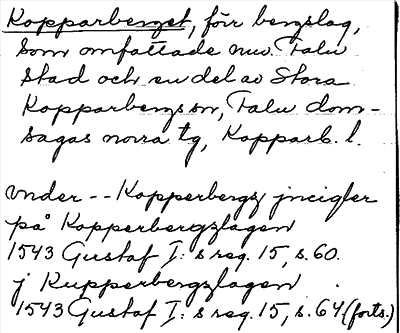 Kopparberget, förr bergslag,
som omfattade nuv. Falu
stad och en del av Stora
Kopparbergs sn, Falu dom-
sagas norra tg, Kopparb. l.
vnder -- Kopperbergz jncigler
på Kopperbergzlagen
1543 Gustaf I: s reg. 15, s. 60.
j Kupperbergzlagen
1543 Gustaf I: s reg. 15, s. 64 (forts.)